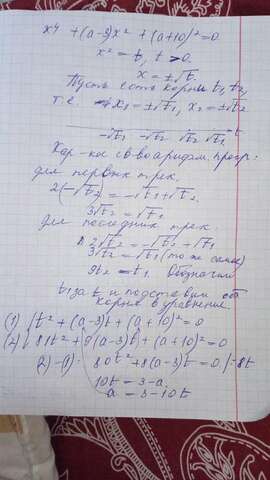 x⁴ + (a-3)x² + (a+10)² = 0
x² = t, t > 0
x = ±√t.
Пусть есть корни t₁, t₂,
т.е. x₁ = ±√t₁, x₂ = ±√t₂
-√t₁ -√t₂ √t₂ √t₁
Хар-ка св-во арифм. прогр:
для первых трех.
2(-√t₂) = -√t₁ + √t₂
3√t₂ = √t₁
для последних трех:
2√t₂ = -√t₂ + √t₁
3√t₂ = √t₁ (то же самое)
9t₂ = t₁. Обозначим
t₂ за t и подставим
корни в уравнение.
(1) { t² + (a-3)t + (a+10)² = 0
(2) { 81t² + 9(a-3)t + (a+10)² = 0
(2)-(1): 80t² + 8(a-3)t = 0 |÷8t
10t = 3-a.
a = 3-10t